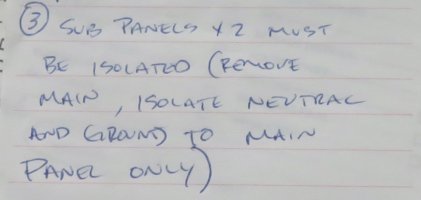 ③ SUB PANELS x 2 MUST
BE ISOLATED (REMOVE
MAIN, ISOLATE NEUTRAL
AND GROUND TO MAIN
PANEL ONLY)